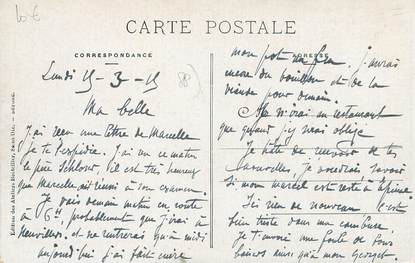 CARTE POSTALE
CORRESPONDANCE
ADRESSE
Lundi 15-3-15
Ma belle
J'ai reçu une lettre de Marcelle
Je te l'expédie. J'ai vu ce matin
le père Schloser, il est très heureux
que Marcelle ait réussi à son examen.
Je pars demain matin en route
à 6h, probablement que j'irai à
et ne rentrerai qu'à midi
aujourd'hui j'ai fait cuire
mon pot au feu. j'aurai
encore du bouillon et de la
viande pour demain.
Je n'irai au restaurant
que quand j'y serai obligé
Je hâte de recevoir de tes
nouvelles, je voudrais savoir
si mon marcel est resté à
Ici rien de nouveau c'est
bien triste dans ma
Je t'envoie une foule de gros
baisers ainsi qu'à mon Georges.